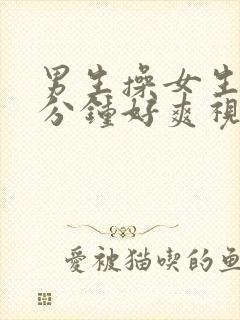 男生操女生
分鐘好爽視
愛被猫喫的魚